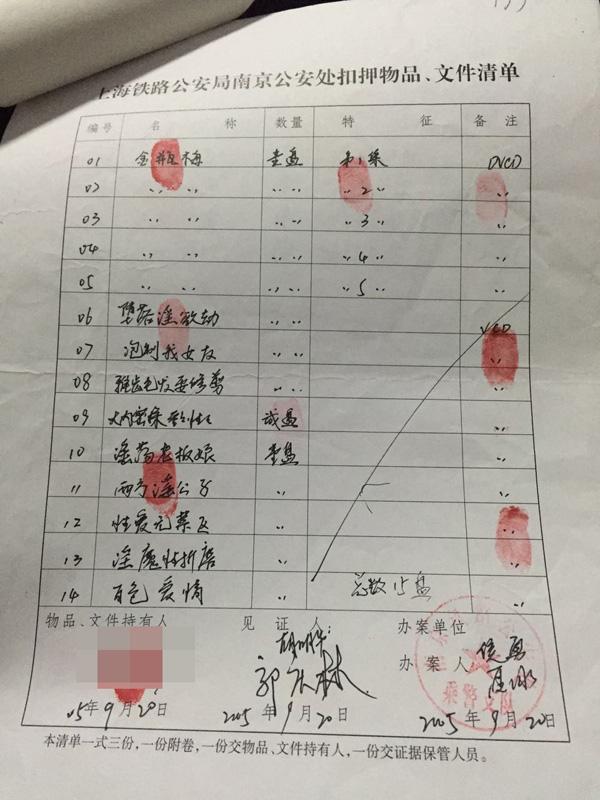 上海铁路公安局南京公安处扣押物品、文件清单
编号 名称 数量 特征 备注
01 金瓶梅 壹盘 第1集 DVCD
02 〃 〃 〃 〃 〃2〃 〃
03 〃 〃 〃 〃 〃3〃 〃
04 〃 〃 〃 〃 〃4〃 〃
05 〃 〃 〃 〃 〃5〃 〃
06 堕落淫欲劫 〃 〃 VCD
07 泡制我女友 〃 〃 〃
08 毛发要修剪 〃 〃 〃
09 大内密 贰盘 〃
10 淫荡老板娘 壹盘 〃
11 淫公子 〃 〃
12 性爱无禁区 〃 〃
13 淫魔性折磨 〃 〃
14 百色爱情 〃 总数15盘 〃
物品、文件持有人 见证人: 办案单位
办案人
郭 林
乘警支队
05年9月20日 2005年9月20日 2005年9月20日
本清单一式三份,一份附卷,一份交物品、文件持有人,一份交证据保管人员。